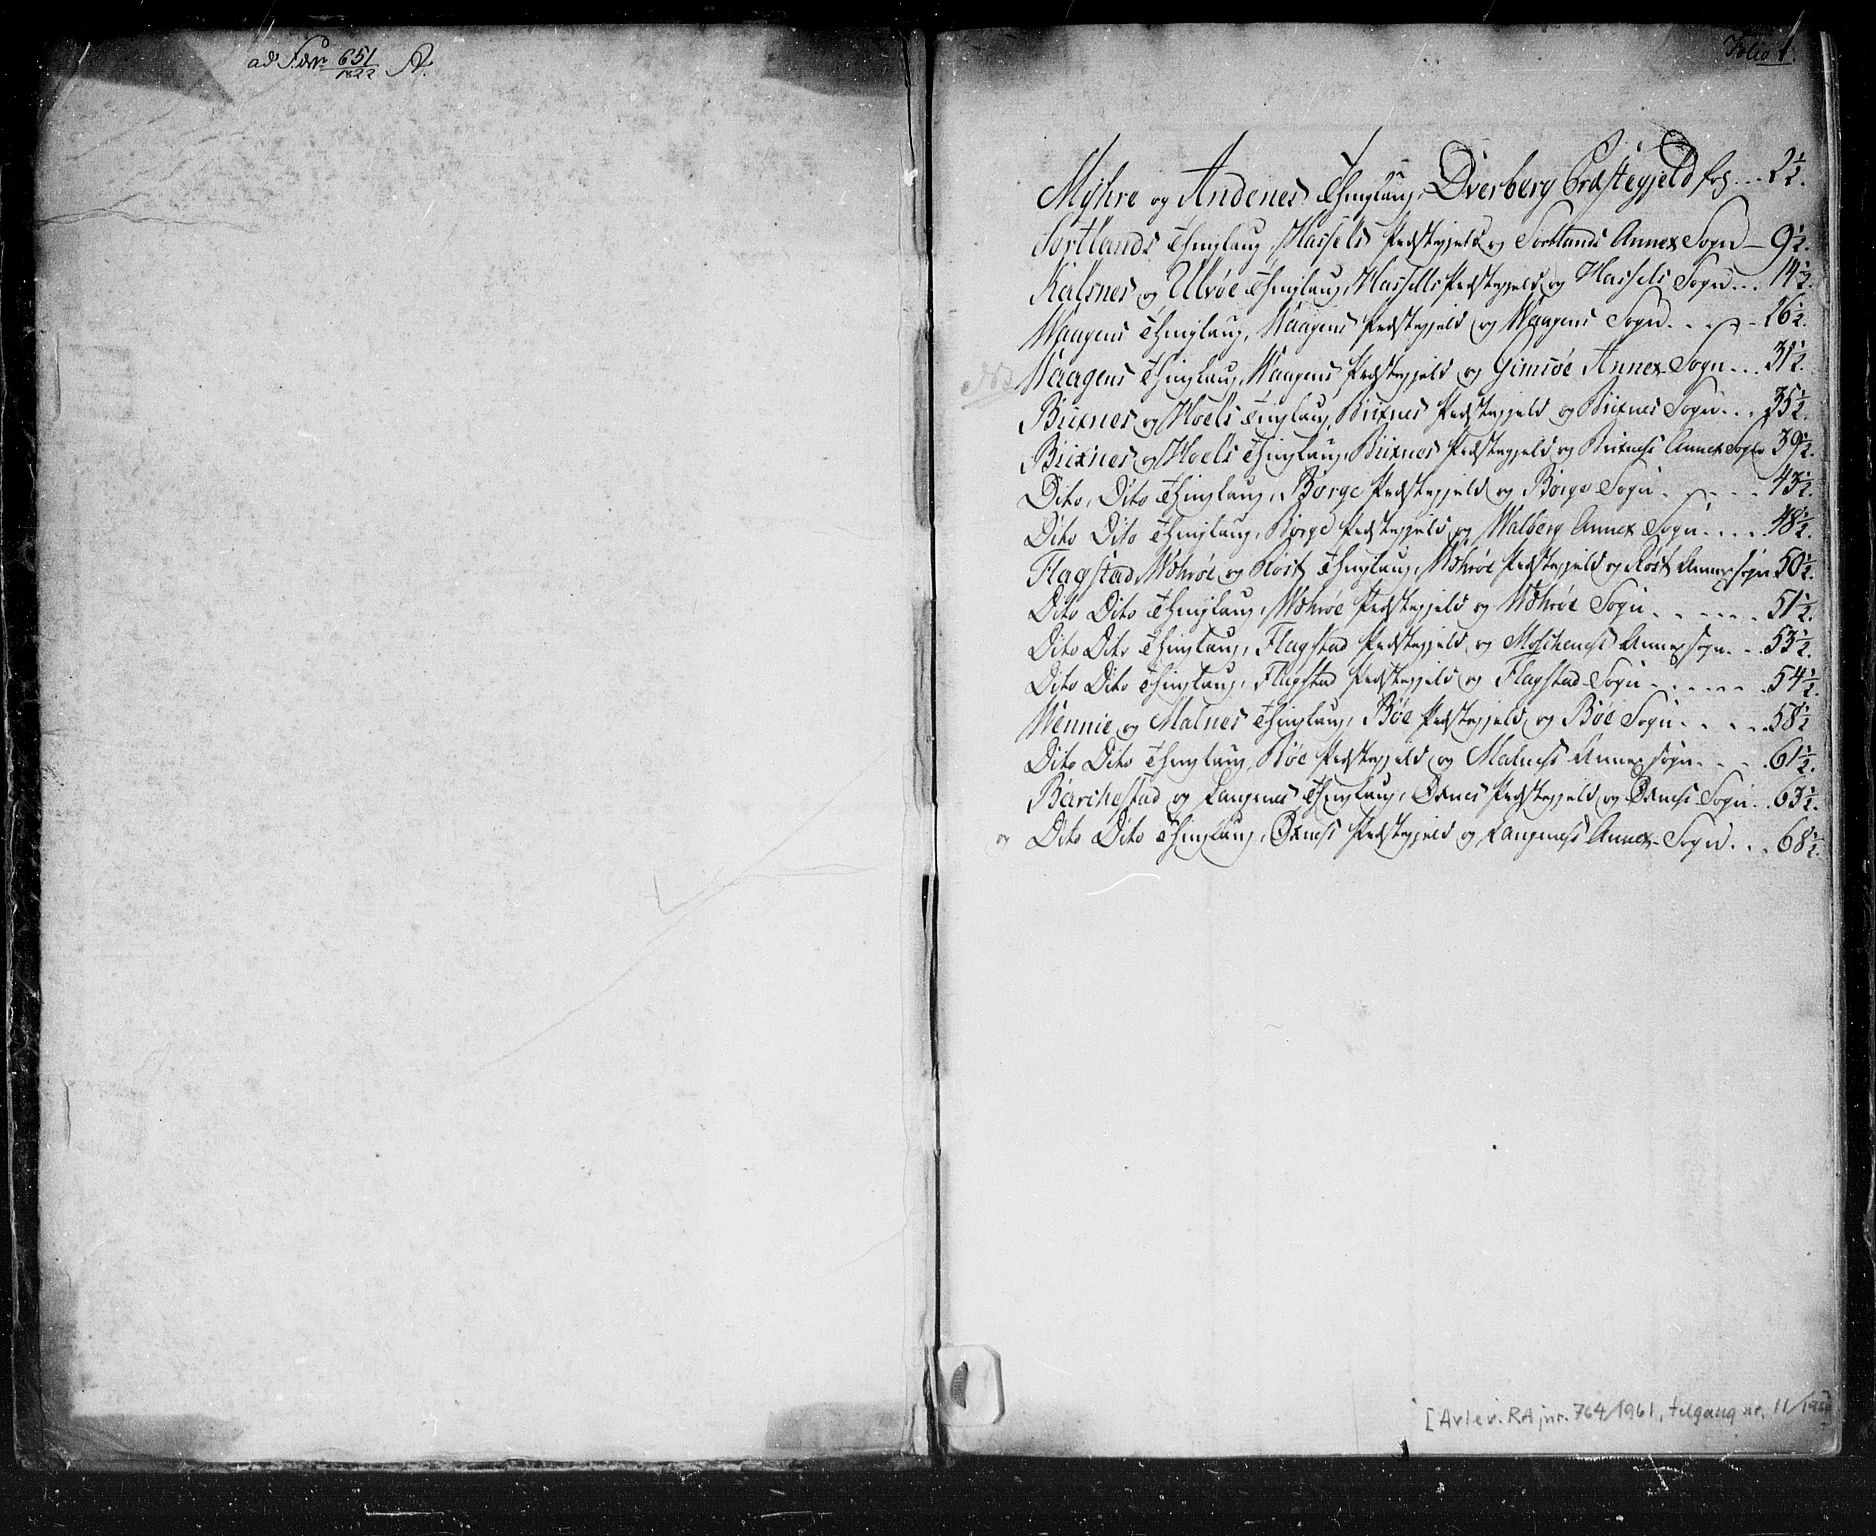 ad F.D.Nr. 651/1822 A.
Folio 1.
Myhre og Andenes Thinglaug, Dverberg Præstegjeld fra . . . 2 1/2.
Sortlands Thinglaug, Hassels Præstegjeld og Sortlands Annex Sogn — 9 1/2.
Kalsnes og Ulvøe Thinglaug, Hassells Præstegjeld og Hassels Sogn . . . 14 1/2.
Waagens Thinglaug, Waagens Præstegjeld og Waagens Sogn . . . . 26 1/2.
Waagens Thinglaug, Waagens Præstegjeld og Gimsøe Annex Sogn . . . 31 1/2.
Buxnes og Hoels Tinglaug, Buxnes Præstegjeld og Buxnes Sogn . . . 35 1/2.
Buxnes og Hoels Thinglaug, Buxnes Præstegjeld og Buxness Annex Sogn 39 1/2.
Dito, Dito Thinglaug, Borge Præstegjeld og Borge Sogn . . . . . 43 1/2.
Dito Dito Thinglaug, Borge Præstegjeld og Walberg Annex Sogn . . . . 48 1/2.
Flagstad, Wæhrøe og Røst Thinglaug, Wæhrøe Præstegjeld og Røst Annexsogn 50 1/2.
Dito Dito Thinglaug, Wæhrøe Præstegjeld og Wæhrøe Sogn . . . . . . 51 1/2.
Dito Dito Thinglaug, Flagstad Præstegjeld og Moschenes Annexsogn . . . 53 1/2.
Dito Dito Thinglaug, Flagstad Præstegjeld og Flagstad Sogn . . . . . . . 54 1/2.
Wennie og Malnes Thinglaug, Bøe Præstegjeld og Bøe Sogn . . . . . 58 1/2
Dito Dito Thinglaug, Bøe Præstegjeld og Malness Annexsogn . . . . 61 1/2.
Barchestad og Langenes Thinglaug, Øxnes Præstegjeld og Øxness Sogn . . 63 1/2.
og Dito Dito Thinglaug, Øxness Præstegjeld og Langeness Annex-Sogn . . . 68 1/2.
[Avlev. RA jnr. 764/1961, tilgang nr. 11/